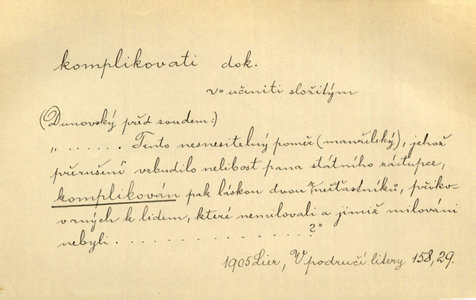 komplikovati dok.
v= učiniti složitým
(Dunovský před soudem:)
„ . . . . . . Tento nesnesitelný poměr (manželský), jehož
přerušení vzbudilo nelibost pana státního zástupce,
komplikován pak láskou dvou nešťastníků, přiko-
vaných k lidem, které nemilovali a jimiž milováni
nebyli . . . . . . . . . . . . . . . ?"
1905 Lier, V područí litery 158, 29.